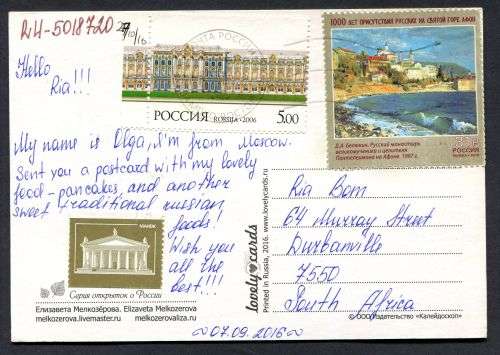 RU-5018720
27/10/16
Hello
Ria!!!
My name is Olga, I'm from Moscow.
Sent you a postcard with my lovely
food-pancakes, and another
sweet traditional russian
foods!
Wish you
all the
best!!!
ПОЧТА РОССИИ
РОССИЯ
ROSSIJA · 2006
5.00
1000 ЛЕТ ПРИСУТСТВИЯ РУССКИХ НА СВЯТОЙ ГОРЕ АФОН
Русский монастырь
великомученика и целителя
Пантелеимона на Афоне. 1887 г.
РОССИЯ
МАНЕЖ
Серия открыток о России
Елизавета Мелкозёрова. Elizaveta Melkozerova
melkozerova.livemaster.ru
melkozerovaliza.ru
lovely cards
Printed in Russia, 2016. www.lovelycards.ru
Ria Bom
64 Murray Street
Durbanville
7550
South Africa
© ООО Издательство «Калейдоскоп»
~07.09.2016~